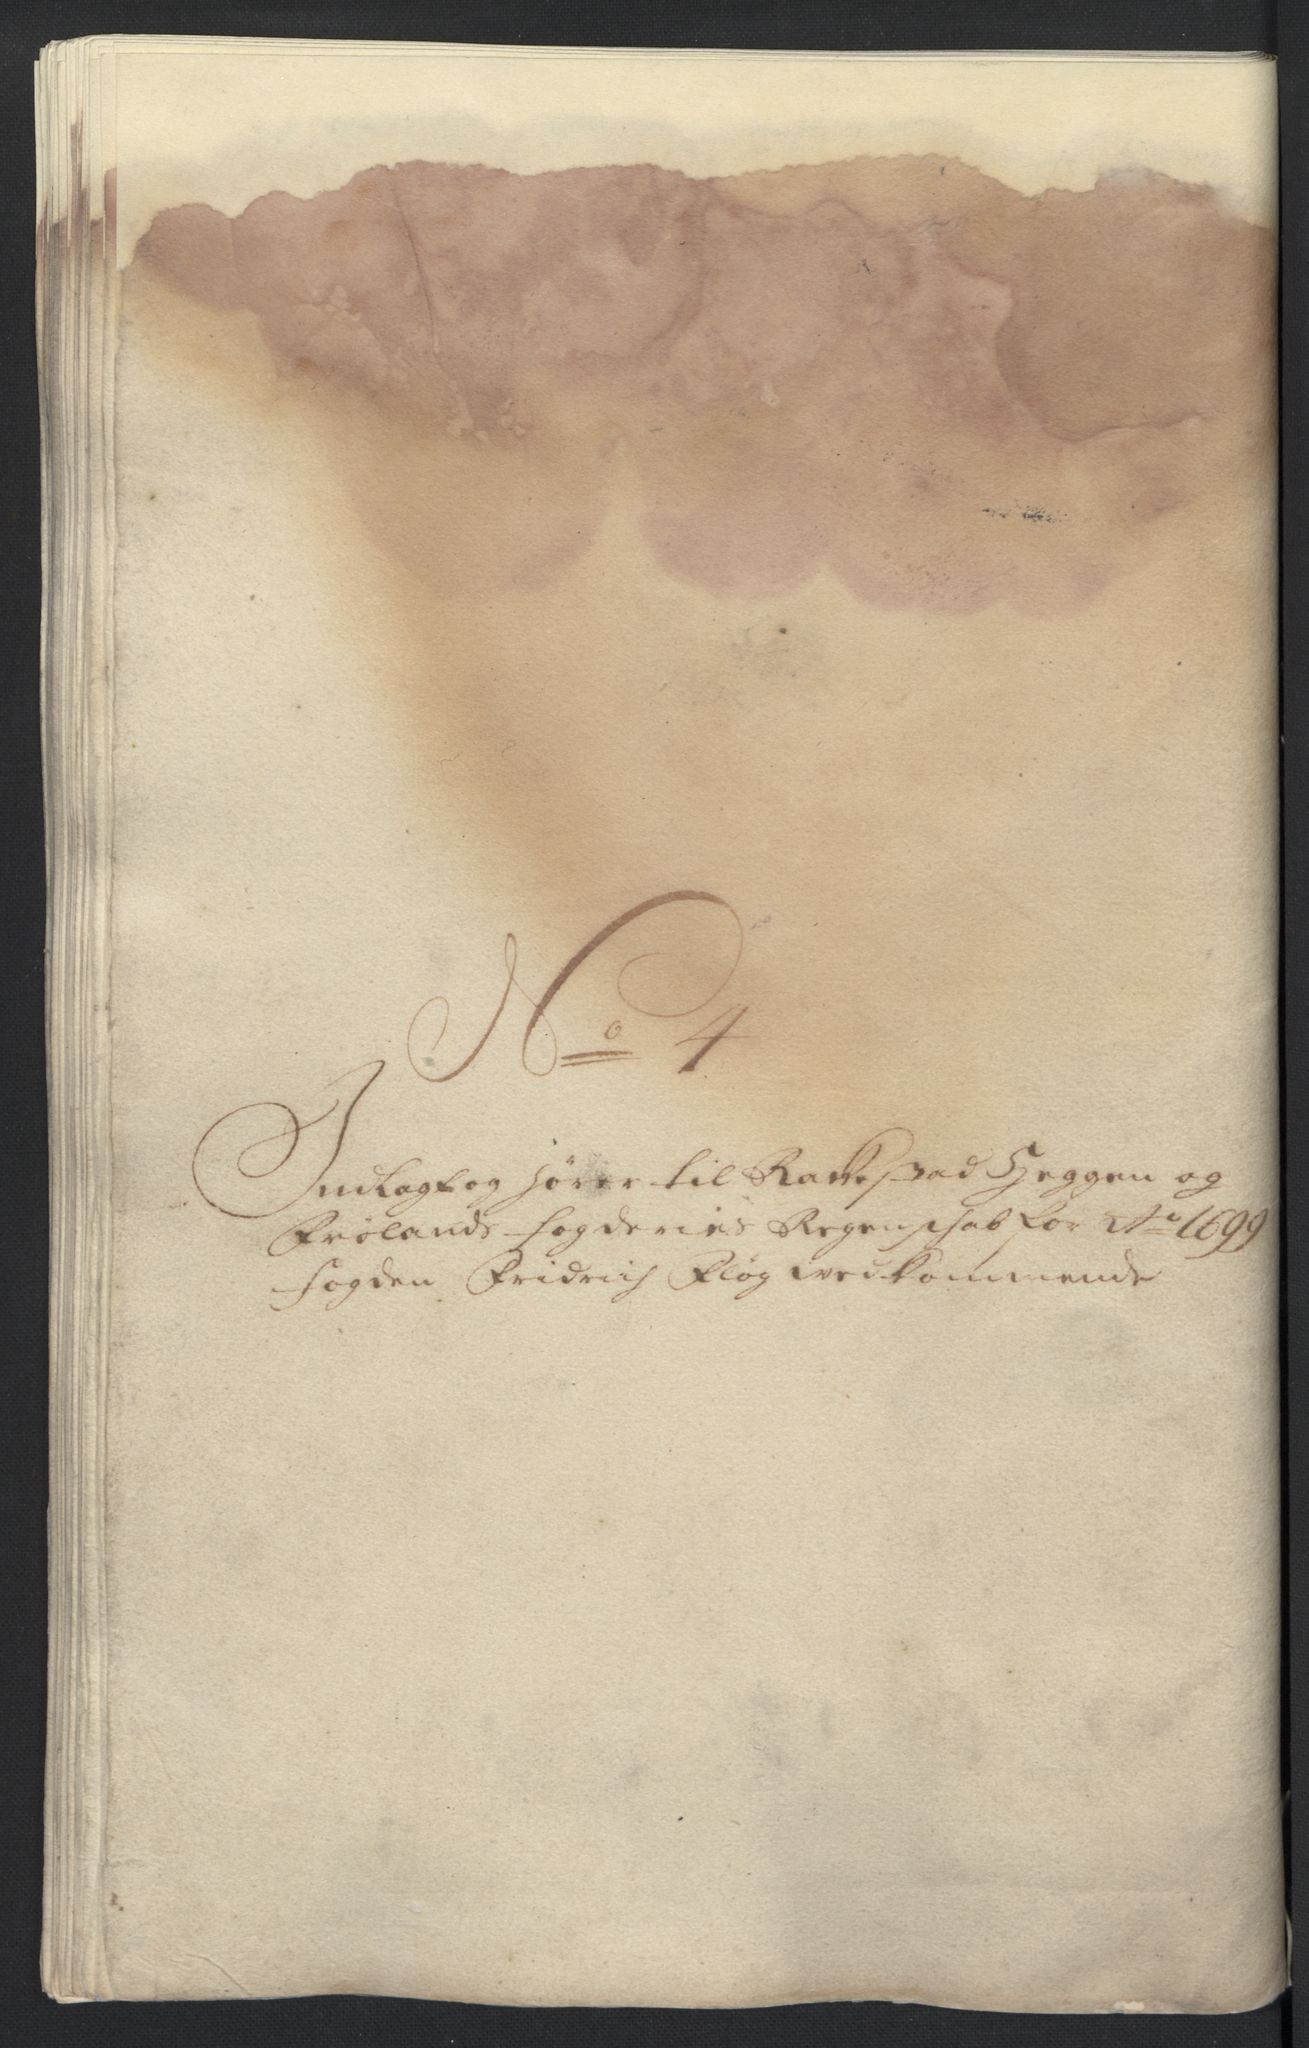 No 4
Indlagt og hører til Rakkestad Heggen og
Frølands fogderies Regenschab for Ao 1699
fogden Fridrich Fløg wedkommende